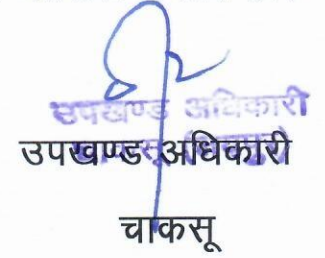 उपखण्ड अधिकारी
उपखण्ड अधिकारी
चाकसू